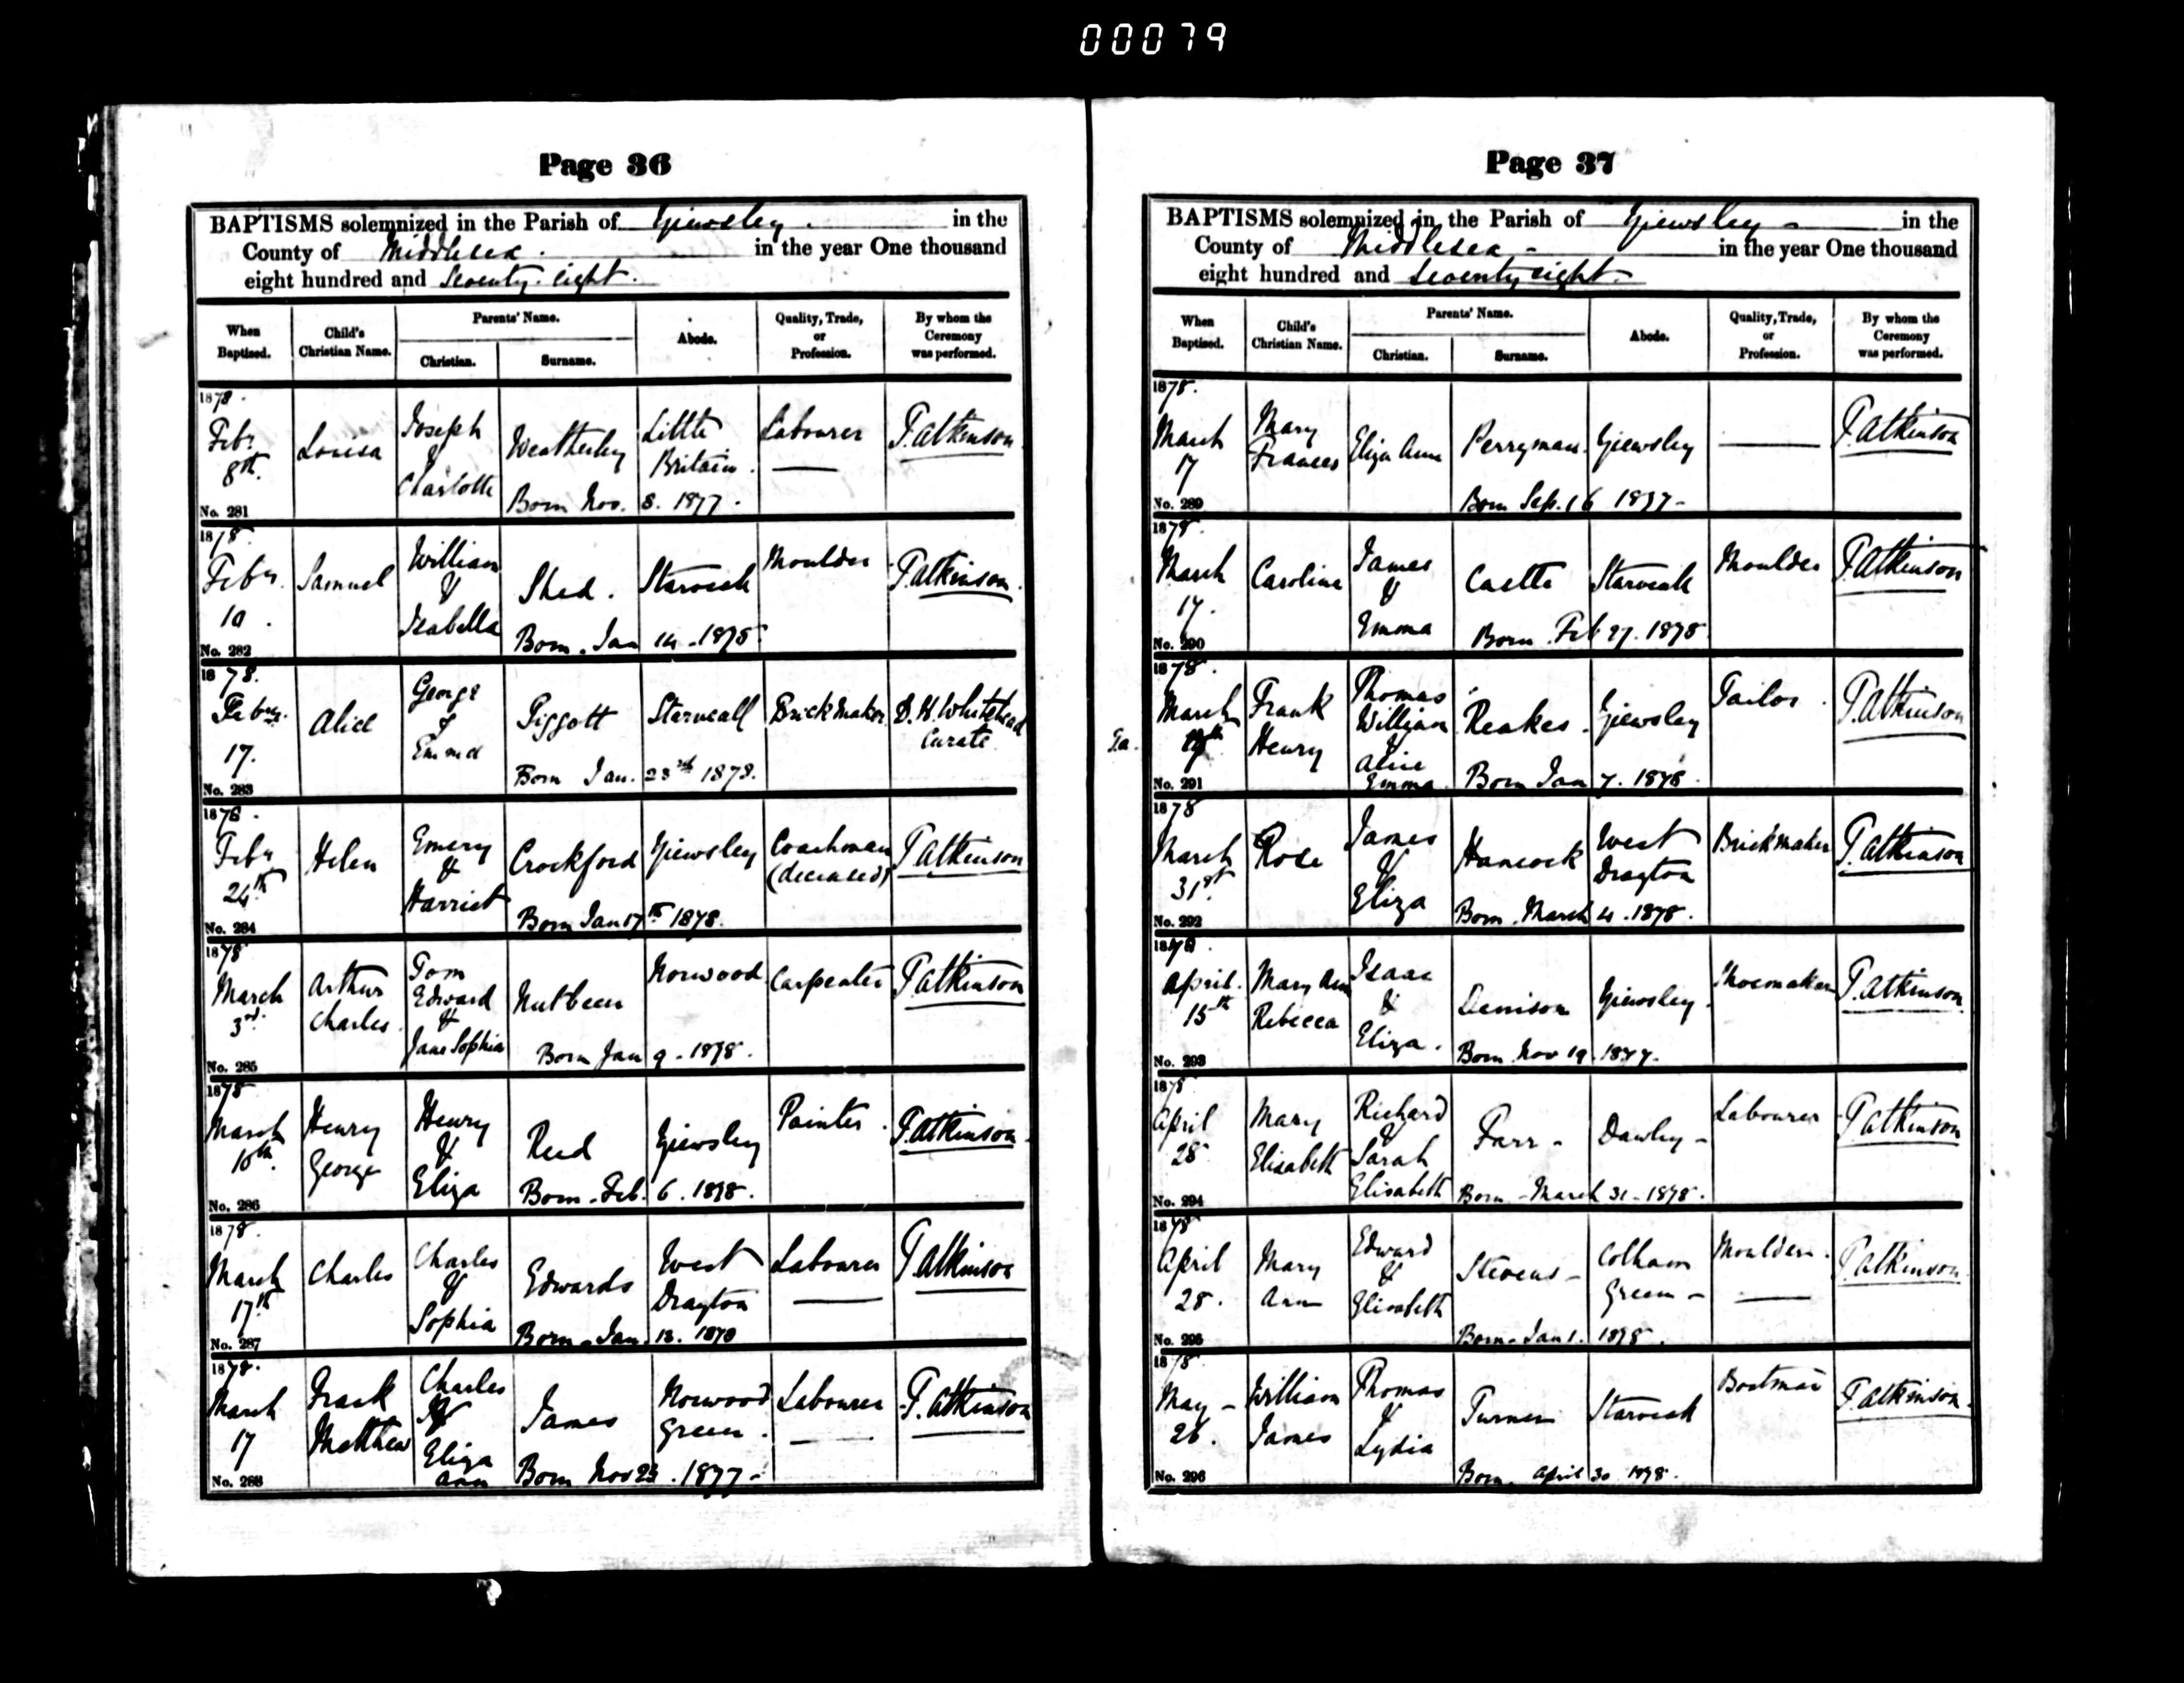 00079
Page 36
BAPTISMS solemnized in the Parish of Yiewsley in the
County of Middlesex in the year One thousand
eight hundred and Seventy-eight.
When Baptised. Child's Christian Name. Parents' Name. Christian. Surname. Abode. Quality, Trade, or Profession. By whom the Ceremony was performed.
1878. Feby 8th. Louisa Joseph & Charlotte Weatherley Little Britain. Labourer T. Atkinson
Born Nov. 8. 1877.
No. 281
1878 Feby. 10. Samuel William & Isabella Shed. Starveall Moulder T. Atkinson.
Born. Jan 14. 1878.
No. 282
1878. Febry. 17. Alice George & Emma Piggott Starveall Brickmaker D. H. Whitehead Curate
Born Jan. 23rd 1878.
No. 283
1878. Feby 24th Helen Emery & Harriet Crockford Yiewsley Coachman (deceased) T Atkinson
Born Jan 17th 1878.
No. 284
1878 March 3rd. Arthur Charles. Tom Edward & Jane Sophia Nutbeen Norwood Carpenter T Atkinson
Born Jan 9. 1878.
No. 285
1878 March 10th. Henry George Henry & Eliza Reed Yiewsley Painter. T. Atkinson
Born. Feb. 6. 1878.
No. 286
1878. March 17th Charles Charles & Sophia Edwards West Drayton Labourer T Atkinson
Born. Jan. 13. 1878
No. 287
1878. March 17 Frank Matthew Charles & Eliza Ann James Norwood Green. Labourer T. Atkinson
Born Nov 23. 1877-
No. 288
Page 37
BAPTISMS solemnized in the Parish of Yiewsley - in the
County of Middlesex - in the year One thousand
eight hundred and Seventy eight.
When Baptised. Child's Christian Name. Parents' Name. Christian. Surname. Abode. Quality, Trade, or Profession. By whom the Ceremony was performed.
1878. March 17 Mary Frances Eliza Ann Perryman. Yiewsley T. Atkinson
Born Sep. 16 1877-
No. 289
1878. March 17. Caroline James & Emma Castle Starveall Moulder T. Atkinson
Born Feb 27. 1878.
No. 290
1878. March Frank Henry Thomas William & Alice Emma Reakes. Yiewsley Tailor. T. Atkinson
Born Jan 7. 1878.
No. 291
1878 March 31st. Rose James & Eliza Hancock West Drayton Brickmaker T. Atkinson
Born. March 4. 1878.
No. 292
1878. April. 15th Mary Ann Rebecca Isaac & Eliza. Denison Yiewsley. Shoemaker T. Atkinson
Born Nov 19. 1877-
No. 293
1878 April 28 Mary Elisabeth Richard & Sarah Elisabeth Farr - Dawley - Labourer T Atkinson
Born - March 31 - 1878.
No. 294
1878 April 28. Mary Ann Edward & Elisabeth Stevens - Colham Green - Moulder. T. Atkinson
Born. Jan 1. 1878.
No. 295
1878 May - 26. William James Thomas & Lydia Turner Starveall Boatman T. Atkinson.
Born. April 30 1878.
No. 296